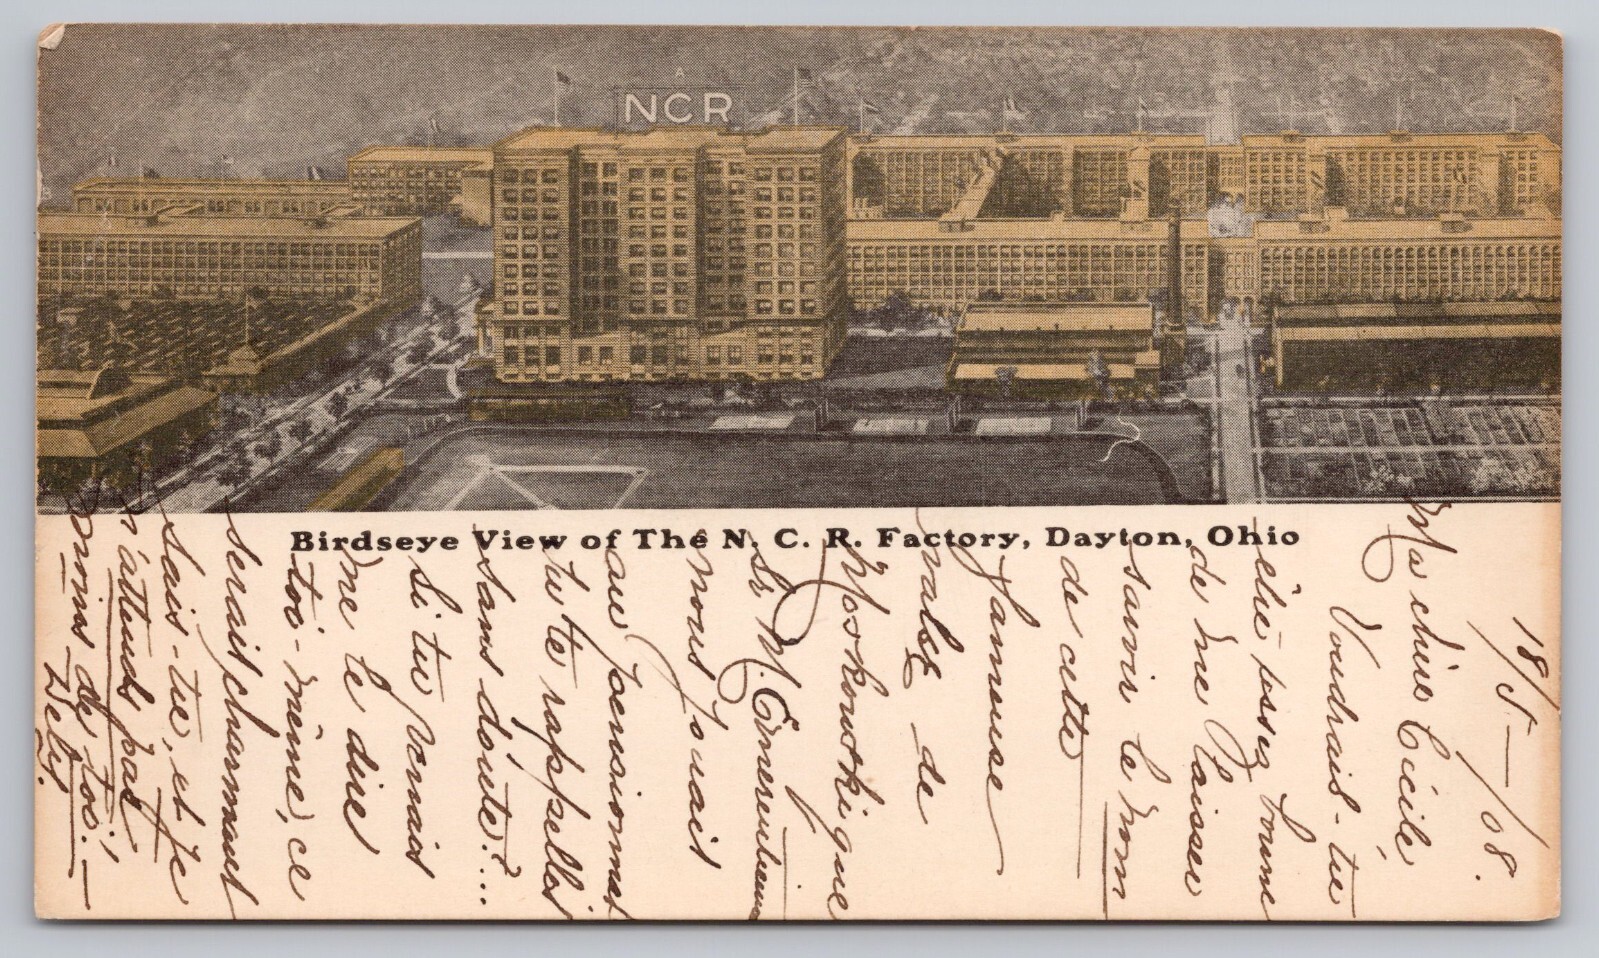 NCR
Birdseye View of The N. C. R. Factory, Dayton, Ohio
18/5-/08.
Ma chère Cécile,
Voudrais-tu
être assez bonne
de me laisser
savoir le nom
de cette
fameuse
valse de
Moskowski que
Sr. M.
nous jouait
au pensionnat
tu te rappelles
sans doute?...
Si tu venais
me le dire
toi-même, ce
serait charmant
sais-tu, et je
n'attends pas
moins de toi!